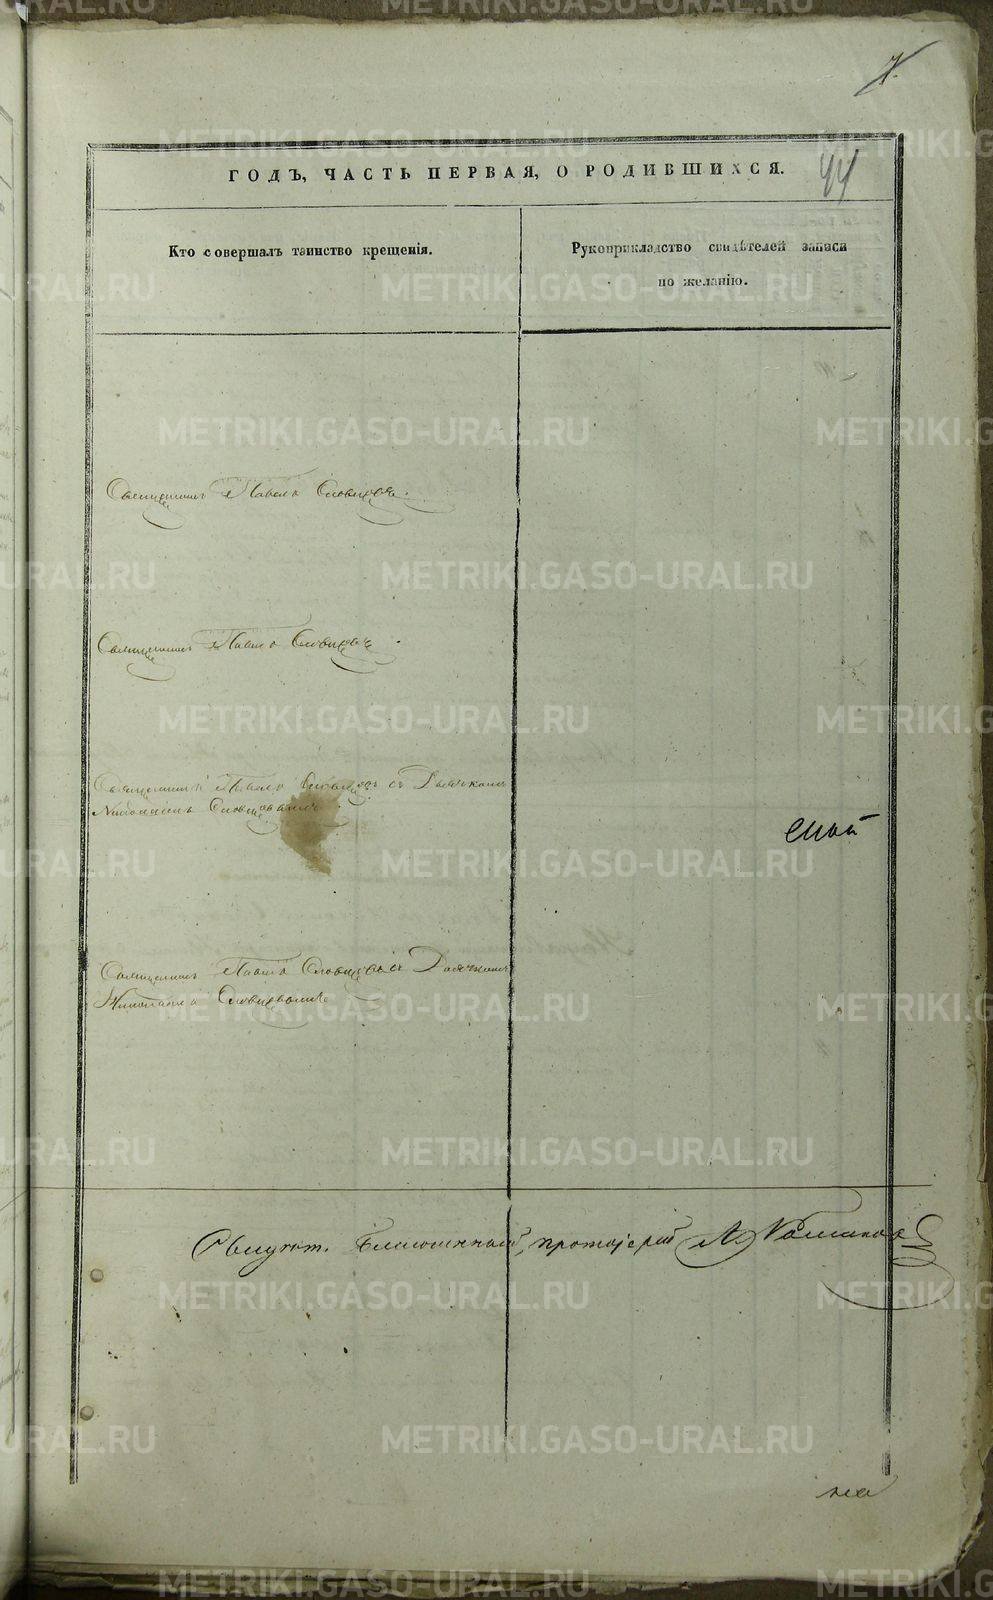 7.
44
ГОДЪ, ЧАСТЬ ПЕРВАЯ, О РОДИВШИХСЯ.
Кто совершалъ таинство крещенія.
Рукоприкладство свидѣтелей записи
по желанію.
Священникъ Павелъ Словцовъ.
Священникъ Павелъ Словцовъ.
Священникъ Павелъ Словцовъ съ Дьячкомъ
Словцовымъ
Священникъ Павелъ Словцовъ съ Дьячкомъ
Николаемъ Словцовымъ
протоіерей А.
METRIKI.GASO-URAL.RU